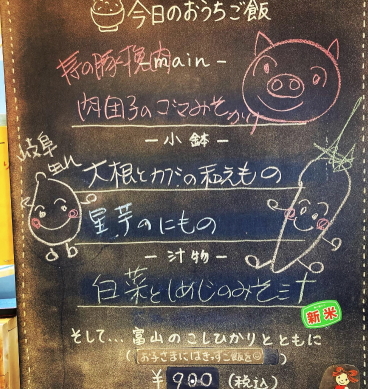 今日のおうちご飯
豚挽肉 -main-
肉団子のゴマみそかけ
-小鉢-
岐阜
大根とカブの和えもの
里芋のにもの
-汁物-
白菜としめじのみそ汁
新米
そして...富山のこしひかりとともに
¥900(税込)